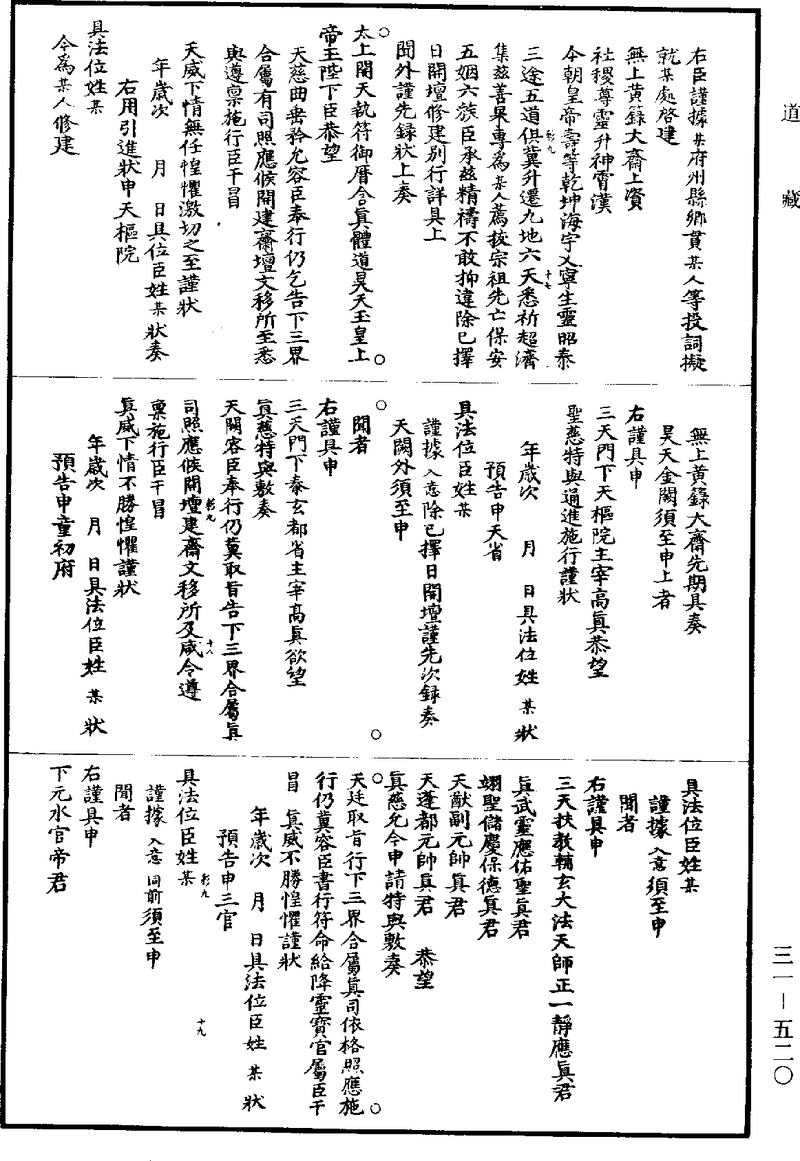 道藏
右臣謹據某府州縣鄉貫某人等投詞擬
就某處啓建
無上黄籙大齋上資
社稷尊靈升神霄漢
今朝皇帝壽等乾坤海宇乂寧生靈昭泰
三途五道俱冀升遷九地六天悉祈超濟
集兹善果專為某人薦拔宗祖先亡保安
五姻六族臣承兹精禱不敢抑違除已擇
日開壇修建别行詳具上
聞外謹先録狀上奏
太上開天執符御曆含眞體道昊天玉皇上
帝玉陛下臣恭望
天慈曲垂矜允容臣奉行仍乞告下三界
合屬有司照應候開建齋壇文移所至悉
與遵禀施行臣干冒
天威下情無任惶懼激切之至謹狀
年歲次 月 日具位臣姓某狀奏
右用引進狀申天樞院
具法位姓某
今為某人修建
無上黄籙大齋先期具奏
昊天金闕須至申上者
右謹具申
三天門下天樞院主宰高眞恭望
聖慈特與通進施行謹狀
年歲次 月 日具法位姓某狀
預告申天省
具法位臣姓某
謹據入意除已擇日開壇謹先次録奏
天闕外須至申
聞者
右謹具申
三天門下泰玄都省主宰高眞欲望
眞慈特與敷奏
天闕容臣奉行仍冀取旨告下三界合屬眞
司照應候開壇建齋文移所及咸令遵
禀施行臣干冒
眞威下情不勝惶懼謹狀
年歲次 月 日具法位臣姓某狀
預告申童初府
具法位臣姓某
謹據入意須至申
聞者
右謹具申
三天扶教輔玄大法天師正一靜應眞君
眞武靈應佑聖眞君
翊聖儲慶保德眞君
天猷副元帥眞君
天蓬都元帥眞君 恭望
眞慈允今申請特與敷奏
天廷取旨行下三界合屬眞司依格照應施
行仍冀容臣書行符命給降靈寳官屬臣干
冒眞威不勝惶懼謹狀
年歲次 月 日具法位臣姓某狀
預告申三官
具法位臣姓某
謹據入意同前須至申
聞者
右謹具申
下元水官帝君
三一－五二〇